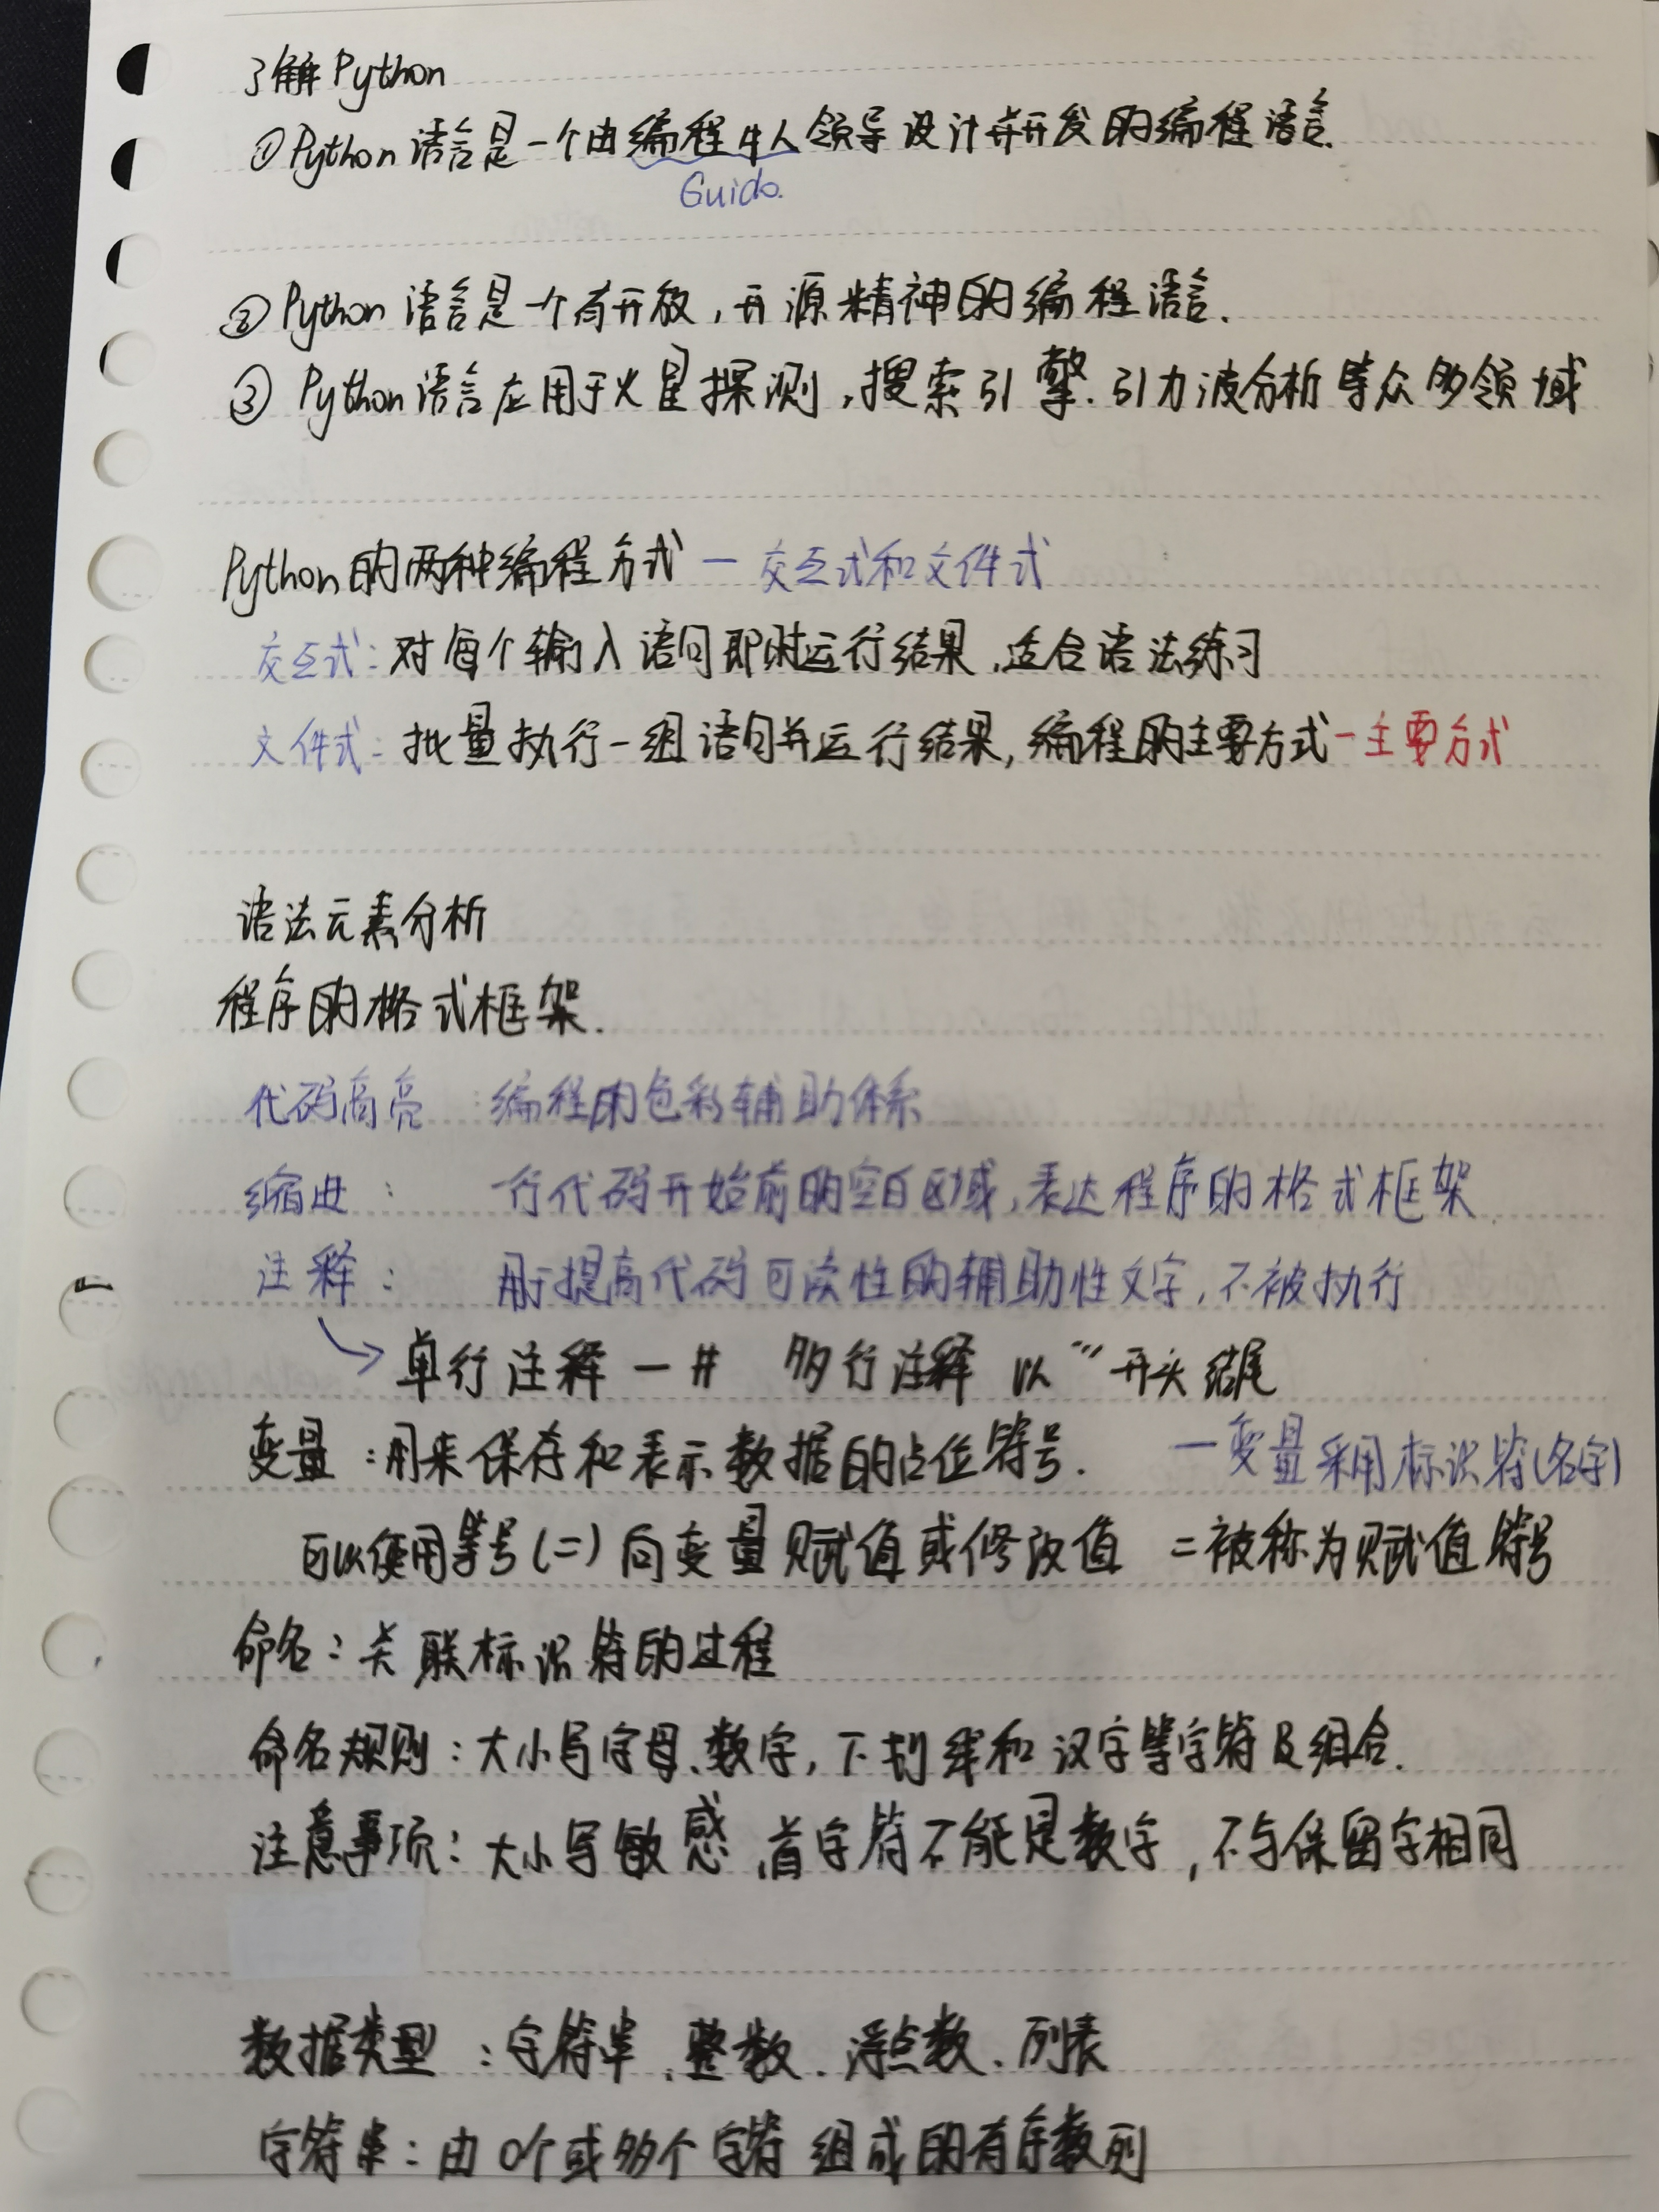 了解Python
①Python语言是一个由编程牛人领导设计并开发的编程语言.
Guido.
②Python语言是一个有开放,开源精神的编程语言.
③Python语言应用于火星探测,搜索引擎.引力波分析等众多领域
Python的两种编程方式—交互式和文件式
交互式:对每个输入语句即时运行结果,适合语法练习
文件式:批量执行一组语句并运行结果,编程的主要方式-主要方式
语法元素分析
程序的格式框架.
代码高亮:编程的色彩辅助体系
缩进:一行代码开始前的空白区域,表达程序的格式框架
注释:用于提高代码可读性的辅助性文字,不被执行
→单行注释—# 多行注释 以'''开头结尾
变量:用来保存和表示数据的占位符号. —变量采用标识符(名字)
可以使用等号(=)向变量赋值或修改值 =被称为赋值符号
命名:关联标识符的过程
命名规则:大小写字母、数字,下划线和汉字等字符及组合.
注意事项:大小写敏感,首字符不能是数字,不与保留字相同
数据类型:字符串、整数、浮点数、列表
字符串:由0个或多个字符组成的有序数列